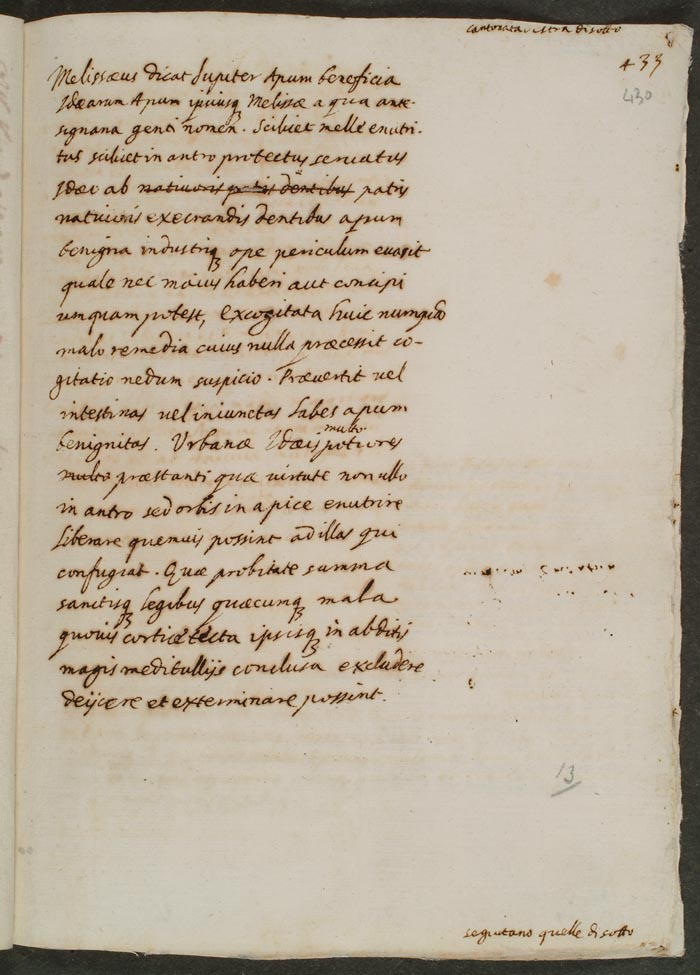 cantonata destra di sotto
433
430
Melissæus dicat Jupiter Apum beneficia
Idæarum Apum ipsiusq; Melissæ a qua ante-
signana genti nomen. Scilicet melle enutri-
tus scilicet in antro protectus servatus
Idæo ab nativioris patris dentibus patris
nativioris execrandis dentibus apum
benigna industriaq; ope periculum evasit
quale nec maius haberi aut concipi
umquam potest, excogitata huic
malo remedia cuius nulla præcessit co-
gitatio nedum suspicio. Prævertit vel
intestinas vel iniunctas labes apum
benignitas. Urbanæ Idæis multo potiores
multo præstanti quæ virtute non ullo
in antro sed orbis in apice enutrire
liberare quemvis possint ad illas qui
confugiat. Quæ probitate summa
sanctisq; legibus quæcunq; mala
quovis cortice tecta ipsisq; in abditis
magis meditullijs conclusa excludere
deijcere et exterminare possint.
13
seguitano quelle di sotto